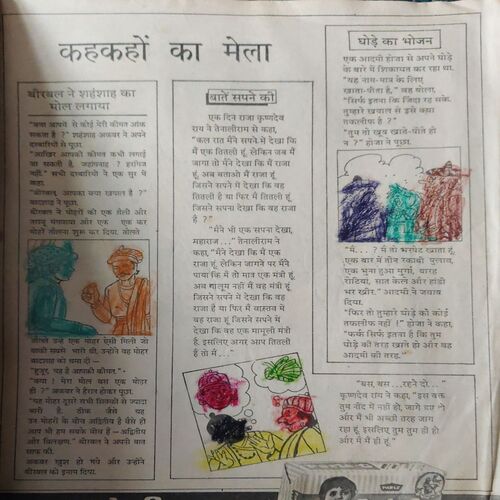 कहकहों का मेला
बीरबल ने शहंशाह का
मोल लगाया
"क्या आपमें से कोई मेरी कीमत आंक
सकता है ?" शहंशाह अकबर ने अपने
दरबारियों से पूछा.
"आखिर आपकी कीमत कभी लगाई
जा सकती है, जहांपनाह ? हरगिज
नहीं." सभी दरबारियों ने एक सुर में
कहा.
"बीरबल, आपका क्या खयाल है ?"
बादशाह ने पूछा.
बीरबल ने मोहरों की एक थैली और
तराजू मंगवाया और एक एक कर
मोहरें तौलना शुरू कर दिया. तौलते
तौलते उन्हें एक मोहर ऐसी मिली जो
बाकी सबसे भारी थी. उन्होंने वह मोहर
बादशाह को थमा दी—
"हुजूर, यह है आपकी कीमत."
"क्या ! मेरा मोल बस एक मोहर
ही ?" अकबर ने हैरान होकर पूछा.
"यह मोहर दूसरे सभी सिक्कों से ज्यादा
भारी है. ठीक जैसे यह
उन मोहरों के बीच अद्वितीय है वैसे ही
आप भी हम सबके बीच हैं—अद्वितीय
और विलक्षण." बीरबल ने अपनी बात
साफ की.
अकबर खुश हो गये और उन्होंने
बीरबल को इनाम दिया.
बातें सपने की
एक दिन राजा कृष्णदेव
राय ने तेनालीराम से कहा,
"कल रात मैंने सपने में देखा कि
मैं एक तितली हूं, लेकिन जब मैं
जागा तो मैंने देखा कि मैं राजा
हूं, अब बताओ मैं राजा हूं
जिसने सपने में देखा कि वह
तितली है या फिर मैं तितली हूं
जिसने सपना देखा कि वह राजा
है ?"
"मैंने भी एक सपना देखा,
महाराज..." तेनालीराम ने
कहा, "मैंने देखा कि मैं एक
राजा हूं, लेकिन जागने पर मैंने
पाया कि मैं तो मात्र एक मंत्री हूं.
अब मालूम नहीं मैं वह मंत्री हूं
जिसने सपने में देखा कि वह
राजा है या फिर मैं वास्तव में
वह राजा हूं जिसने सपने में
देखा कि वह एक मामूली मंत्री
है. इसलिए अगर आप तितली
हैं तो मैं..."
"बस, बस...रहने दो..."
कृष्णदेव राय ने कहा, "इस वक्त
तुम नींद में नहीं हो, जागे हुए हो
और मैं भी अच्छी तरह जाग
रहा हूं. इसलिए तुम तुम ही हो
और मैं मैं ही हूं."
घोड़े का भोजन
एक आदमी होजा से अपने घोड़े
के बारे में शिकायत कर रहा था.
"यह नाम-मात्र के लिए
खाता-पीता है," वह बोला,
"सिर्फ इतना कि जिंदा रह सके.
तुम्हारे खयाल से इसे क्या
तकलीफ है ?"
"तुम तो खूब खाते-पीते हो
न ?" होजा ने पूछा.
"मैं... ? मैं तो भरपेट खाता हूं,
एक बार में तीन रकाबी पुलाव,
एक भुना हुआ मुर्गा, बारह
रोटियां, सात केले और हांडी
भर खीर." आदमी ने जवाब
दिया.
"फिर तो तुम्हारे घोड़े को कोई
तकलीफ नहीं !" होजा ने कहा,
"फर्क सिर्फ इतना है कि तुम
घोड़े की तरह खाते हो और वह
आदमी की तरह."
PARLE